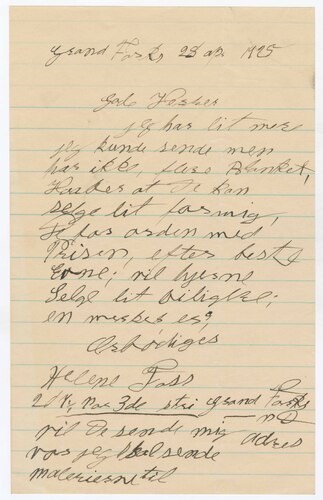 Grand Forks 28 ap. 1925
jeg har lit mer
jeg kunde sende men
har ikke, flere Blanket,
at De kan
selge lit for mig,
orden med
Prisen, efter beste
Evne; vil gjerne
Selge lit biligere;
en
Ærbødiges
Helene Foss
Nor 3de stri Grand Forks
ND
vil De sende mig adres
vor jeg skal sende
malerierne til